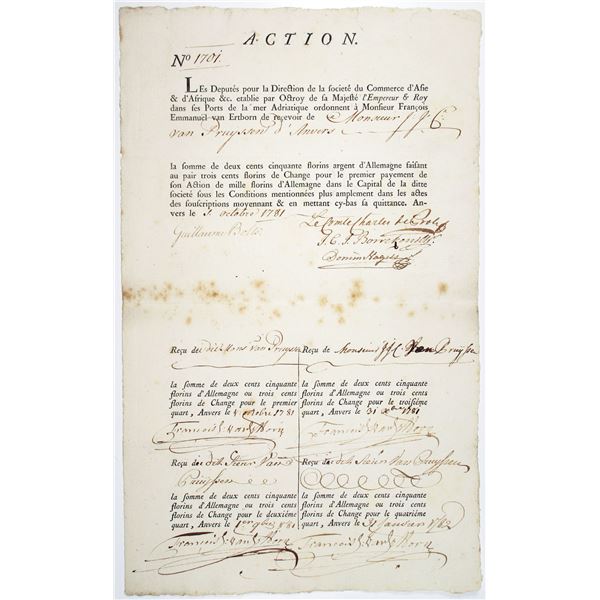 ACTION.
No 1701.
LEs Deputés pour la Direction de la societé du Commerce d'Asie
& d'Afrique &c. etablie par Octroy de sa Majesté l'Empereur & Roy
dans ses Ports de la mer Adriatique ordonnent à Monsieur François
Emmanuel van Ertborn de recevoir de Monsieur J. J. C.
van Pruyssen d'Anvers
la somme de deux cents cinquante florins argent d'Allemagne faisant
au pair trois cents florins de Change pour le premier payement de
son Action de mille florins d'Allemagne dans le Capital de la ditte
societé sous les Conditions mentionnées plus amplement dans les actes
des souscriptions moyennant & en mettant cy-bas sa quittance. An-
vers le 3 octobre 1781
Guillaume Bolts
Le Comte Charles de Proli
J. C. J. Borrekens
Reçu de dit Mons Van Pruyssen
la somme de deux cents cinquante
florins d'Allemagne ou trois cents
florins de Change pour le premier
quart, Anvers le 4 octobre 1781
Reçu de Monsieur J J C Van Pruyssen
la somme de deux cents cinquante
florins d'Allemagne ou trois cents
florins de Change pour le troisiéme
quart, Anvers le 31 Xbre 1781
Reçu de dit Sieur Van
Pruyssen
la somme de deux cents cinquante
florins d'Allemagne ou trois cents
florins de Change pour le deuxiéme
quart, Anvers le 1781
Reçu de dit Sieur Van Pruyssen
la somme de deux cents cinquante
florins d'Allemagne ou trois cents
florins de Change pour le quatriéme
quart, Anvers le 31 Janvier 1782